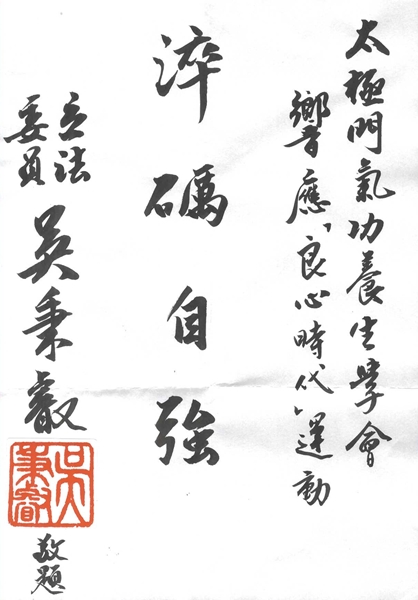 太極門氣功養生學會
響應「良心時代」運動
淬礪自強
立法委員 吳秉叡
吳秉叡
敬題